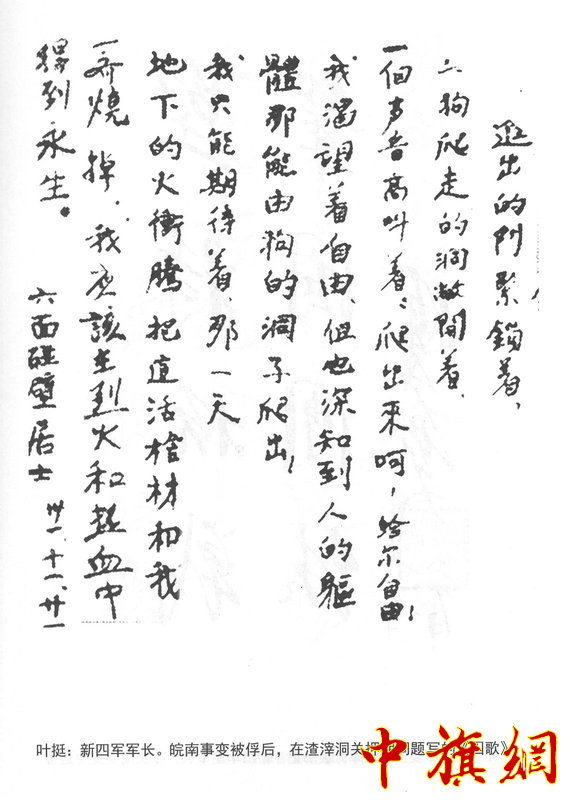 出的門緊鎖着、
狗爬走的洞敞開着、
一個声音高叫着：爬出來呵，给尔自由！
我渴望着自由、但也深知到人的軀
體那能由狗的洞子爬出！
我只能期待着、那一天
地下的火衝騰把這活棺材和我
一齊燒掉、我应該在烈火和熱血中
得到永生。
六面碰壁居士 卅一、十一、廿一
叶挺：新四军军长。皖南事变被俘后，在渣滓洞关押 题写的《囚歌》
中旗網